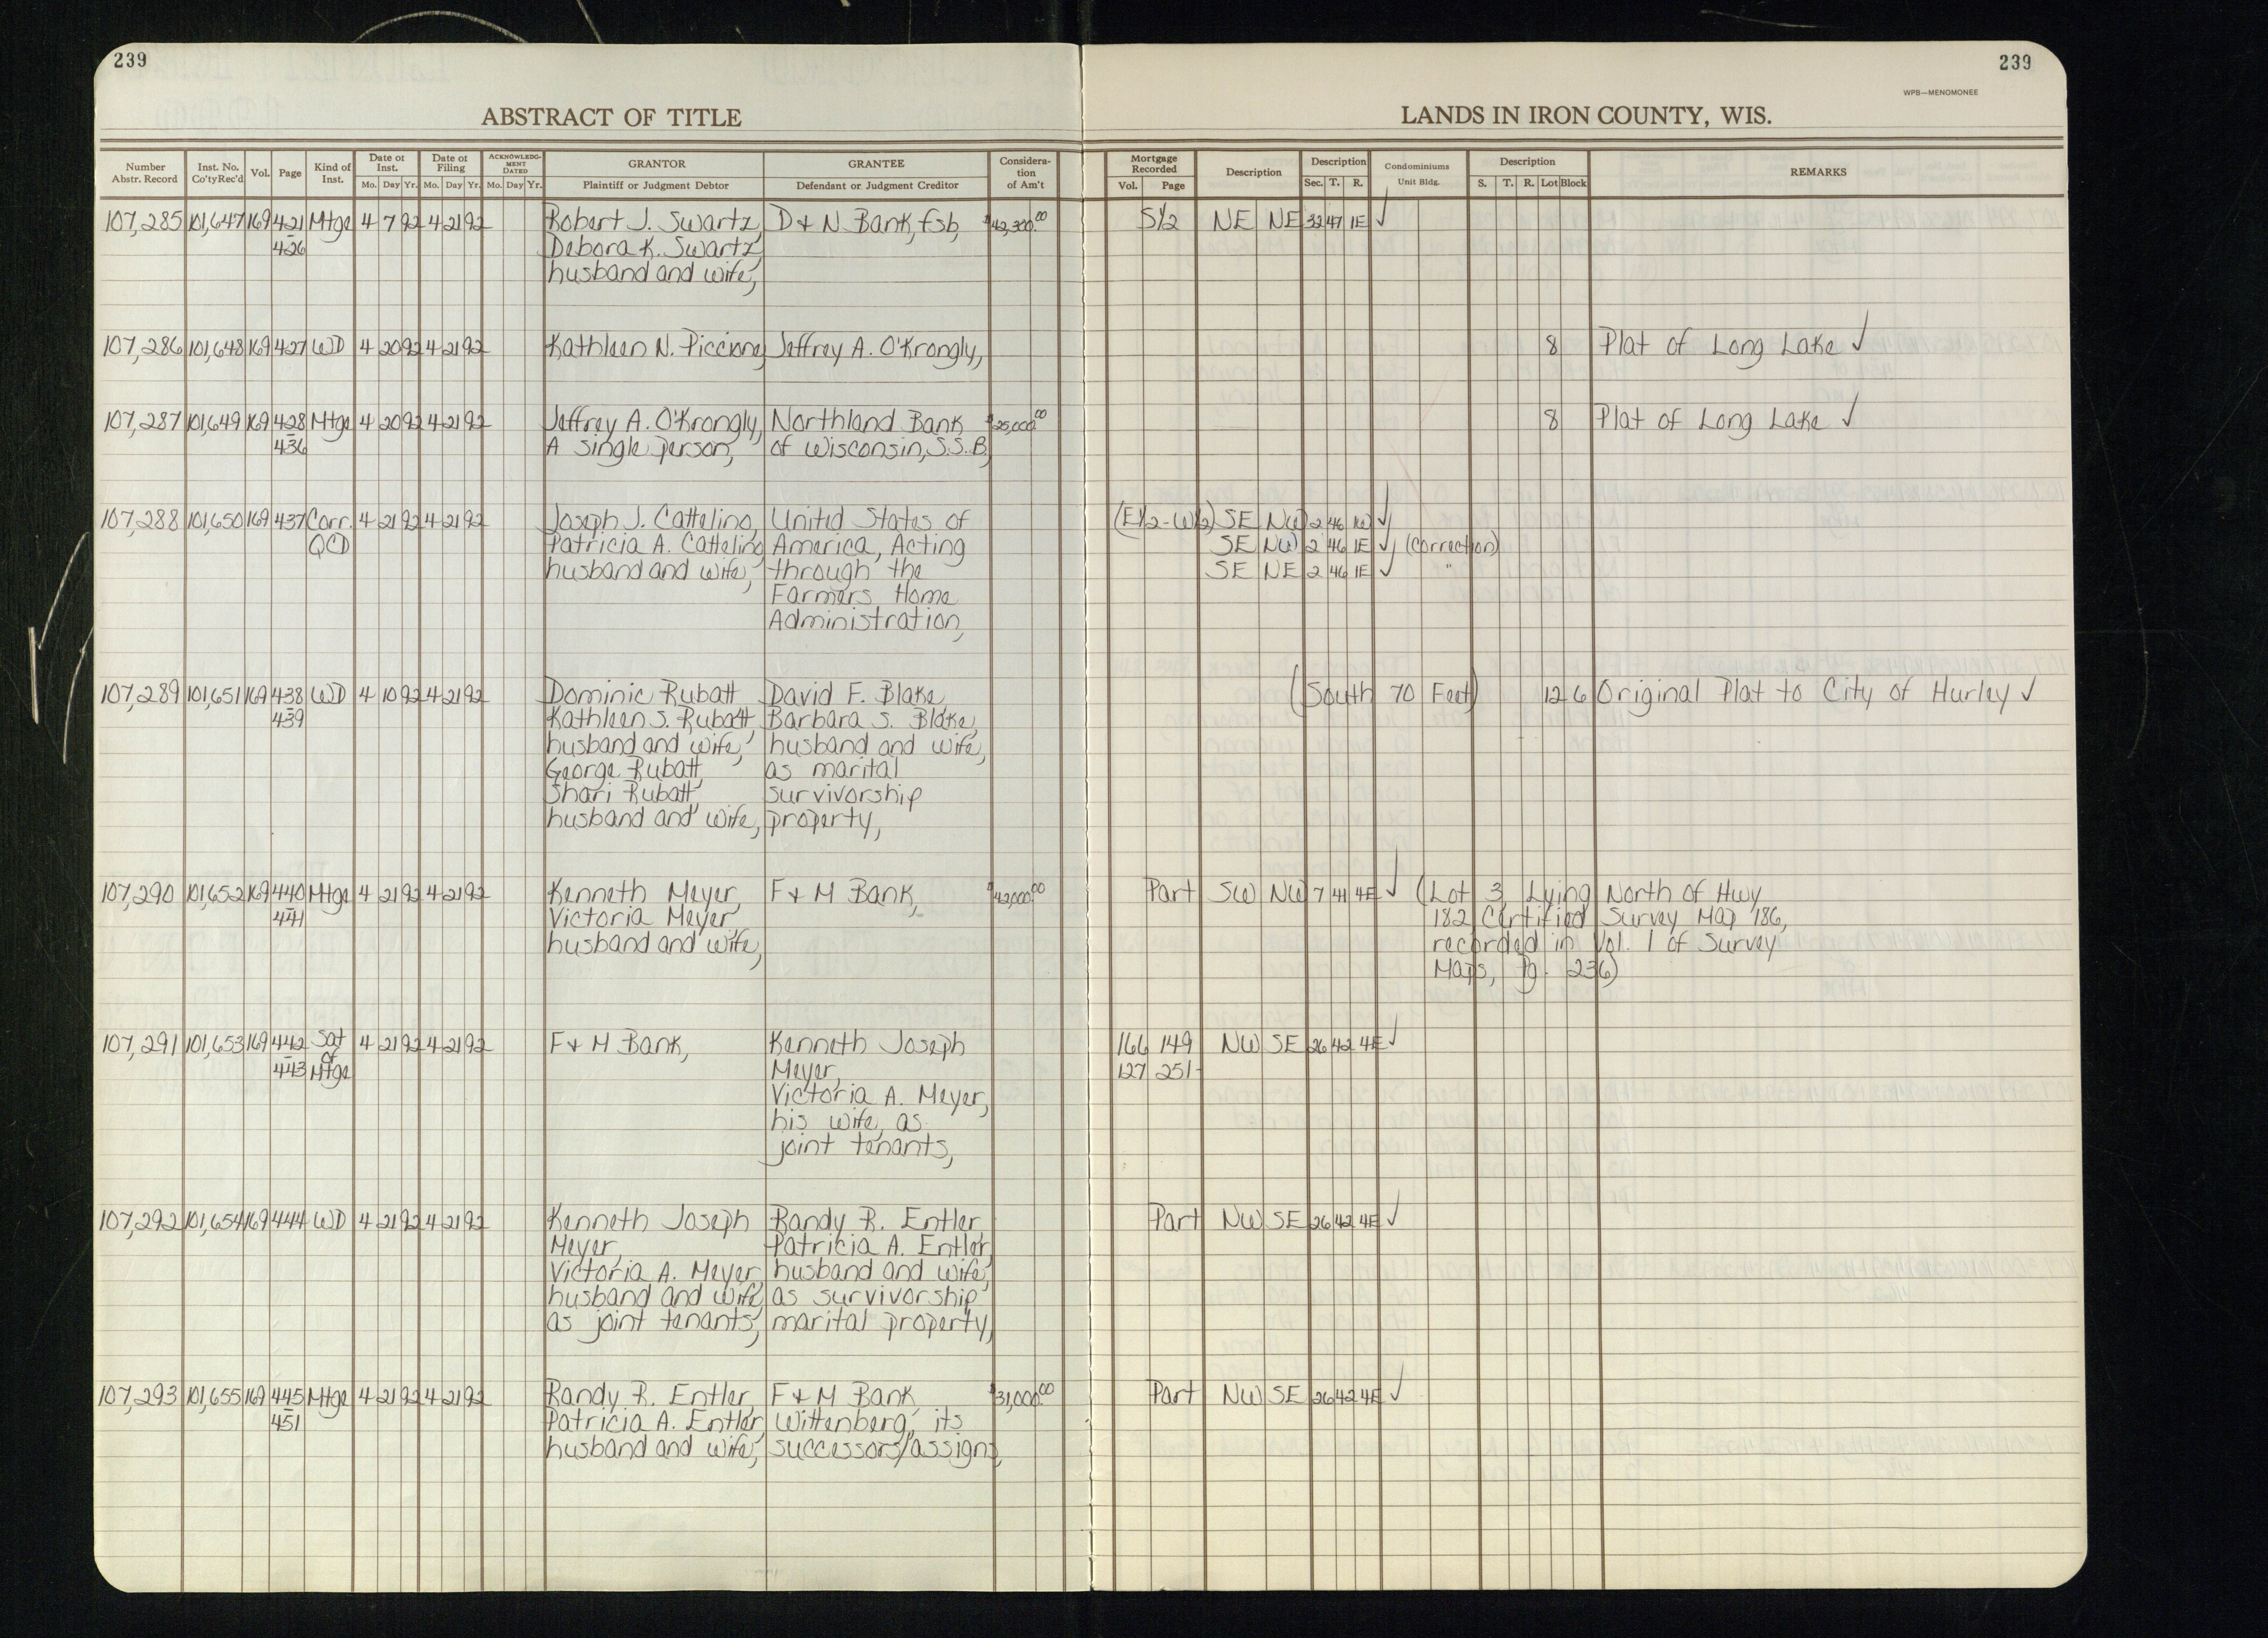 239
239
WPB—MENOMONEE
ABSTRACT OF TITLE
LANDS IN IRON COUNTY, WIS.
Number Abstr. Record Inst. No. Co'ty Rec'd Vol. Page Kind of Inst. Date of Inst. Mo. Day Yr. Date of Filing Mo. Day Yr. ACKNOWLEDGMENT DATED Mo. Day Yr. GRANTOR Plaintiff or Judgment Debtor GRANTEE Defendant or Judgment Creditor Consideration of Am't Mortgage Recorded Vol. Page Description Description Sec. T. R. Condominiums Unit Bldg. Description S. T. R. Lot Block REMARKS
107,285 101,647 169 421 Mtge 4 7 92 4 21 92 Robert J. Swartz, D & N Bank, fsb, $42,300.00 S1/2 NE NE 32 47 1E ✓
- 426 Debora K. Swartz,
husband and wife,
107,286 101,648 169 427 WD 4 20 92 4 21 92 Kathleen N. Piccione, Jeffrey A. O'Krongly, 8 Plat of Long Lake ✓
107,287 101,649 169 428 Mtge 4 20 92 4 21 92 Jeffrey A. O'Krongly, Northland Bank $25,000.00 8 Plat of Long Lake ✓
- 436 A single person, of Wisconsin, S.S.B,
107,288 101,650 169 437 Corr. 4 21 92 4 21 92 Joseph J. Cattelino, United States of (E1/2-W1/2) SE NW 2 46 1W ✓
QCD Patricia A. Cattelino, America, Acting SE NW 2 46 1E ✓ (correction)
husband and wife, through the SE NE 2 46 1E ✓ "
Farmers Home
Administration,
107,289 101,651 169 438 WD 4 10 92 4 21 92 Dominic Rubatt, David F. Blake, (South 70 Feet) 12 6 Original Plat to City of Hurley ✓
- 439 Kathleen S. Rubatt, Barbara S. Blake,
husband and wife, husband and wife,
George Rubatt, as marital
Shari Rubatt, survivorship
husband and wife, property,
107,290 101,652 169 440 Mtge 4 21 92 4 21 92 Kenneth Meyer, F & M Bank, $42,000.00 Part SW NW 7 41 4E ✓ (Lot 3, Lying North of Hwy
- 441 Victoria Meyer, 182 Certified Survey Map 186,
husband and wife, recorded in Vol. 1 of Survey
Maps, Pg. 236)
107,291 101,653 169 442 Sat 4 21 92 4 21 92 F & M Bank, Kenneth Joseph 166 149 NW SE 26 42 4E ✓
- 443 of Mtge Meyer, 127 251
Victoria A. Meyer,
his wife, as
joint tenants,
107,292 101,654 169 444 WD 4 21 92 4 21 92 Kenneth Joseph Randy R. Entler, Part NW SE 26 42 4E ✓
Meyer, Patricia A. Entler,
Victoria A. Meyer, husband and wife,
husband and wife, as survivorship
as joint tenants, marital property,
107,293 101,655 169 445 Mtge 4 21 92 4 21 92 Randy R. Entler, F & M Bank $31,000.00 Part NW SE 26 42 4E ✓
- 451 Patricia A. Entler, Wittenberg, its
husband and wife, successors/assigns,